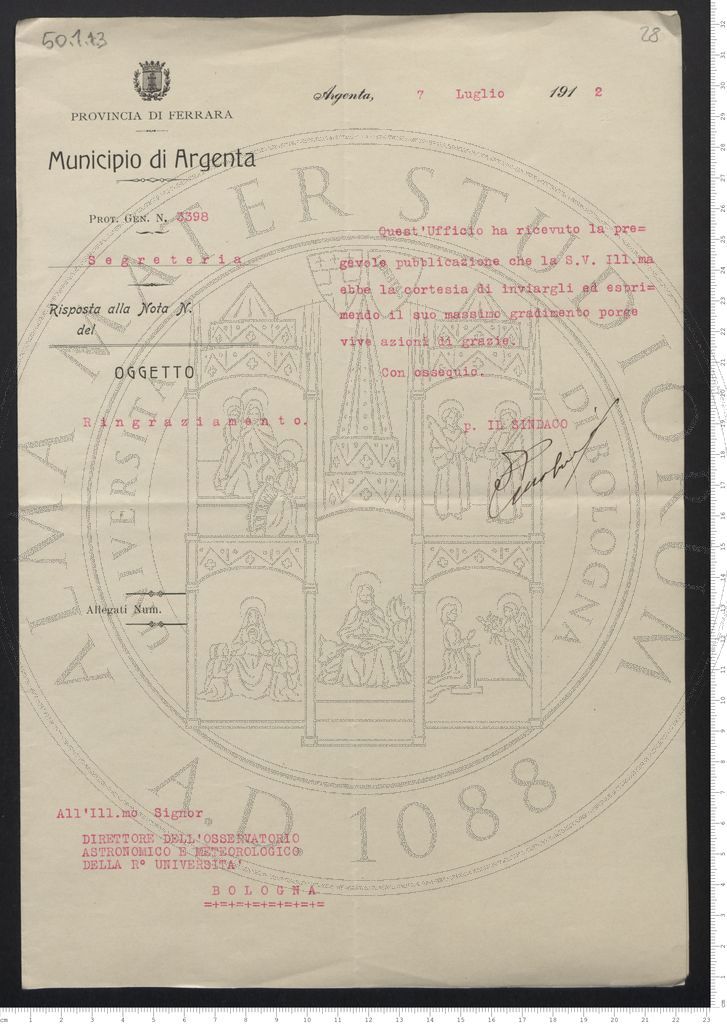 50.1.13
28
Argenta, 7 Luglio 191 2
PROVINCIA DI FERRARA
Municipio di Argenta
PROT. GEN. N. 3398
Segreteria
Risposta alla Nota N.
del
OGGETTO
Ringraziamento.
Quest'Ufficio ha ricevuto la pre=
gevole pubblicazione che la S.V. Ill.ma
ebbe la cortesia di inviargli ed espri=
mendo il suo massimo gradimento porge
vive azioni di grazie.
Con ossequio.
p. IL SINDACO
Allegati Num.
All'Ill.mo Signor
DIRETTORE DELL'OSSERVATORIO
ASTRONOMICO E METEOROLOGICO
DELLA R° UNIVERSITA'
BOLOGNA
=+=+=+=+=+=+=+=
ALMA MATER STUDIORUM
UNIVERSITA DI BOLOGNA
A.D 1088